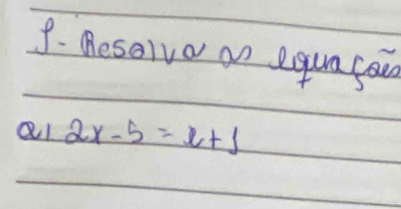 1- Resolva as equações
a) 2x - 5 = x + 1